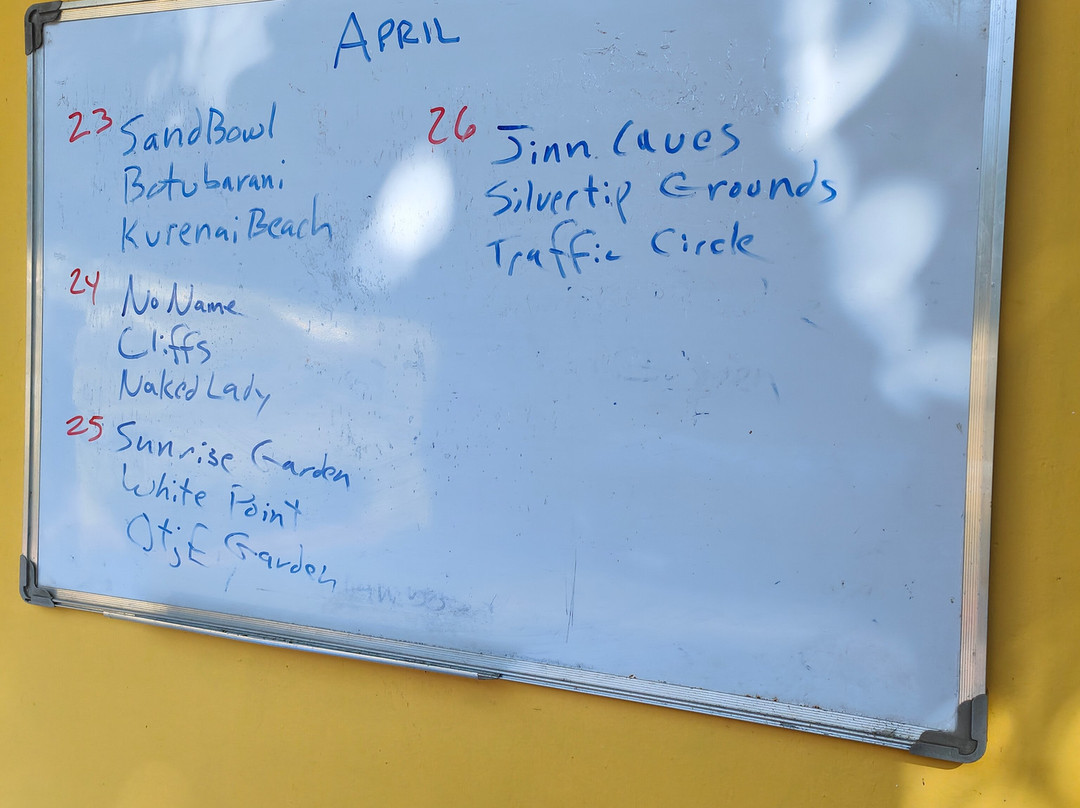 APRIL
23 SandBowl
Botubarani
Kurenai Beach
24 No Name
Cliffs
Naked Lady
25 Sunrise Garden
White Point
OtjE Garden
26 Jinn Caves
Silvertip Grounds
Traffic Circle